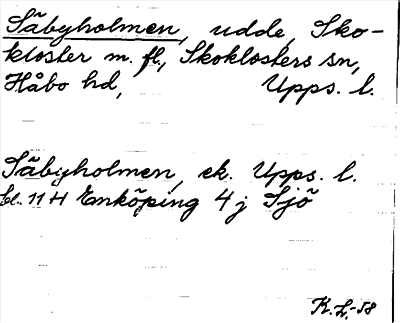 Säbyholmen, udde, Sko-
kloster m. fl., Skoklosters sn,
Håbo hd, Upps. l.
Säbyholmen, ek. Upps. l.
bl. 11 H Enköping 4 j Sjö
K. L. -58